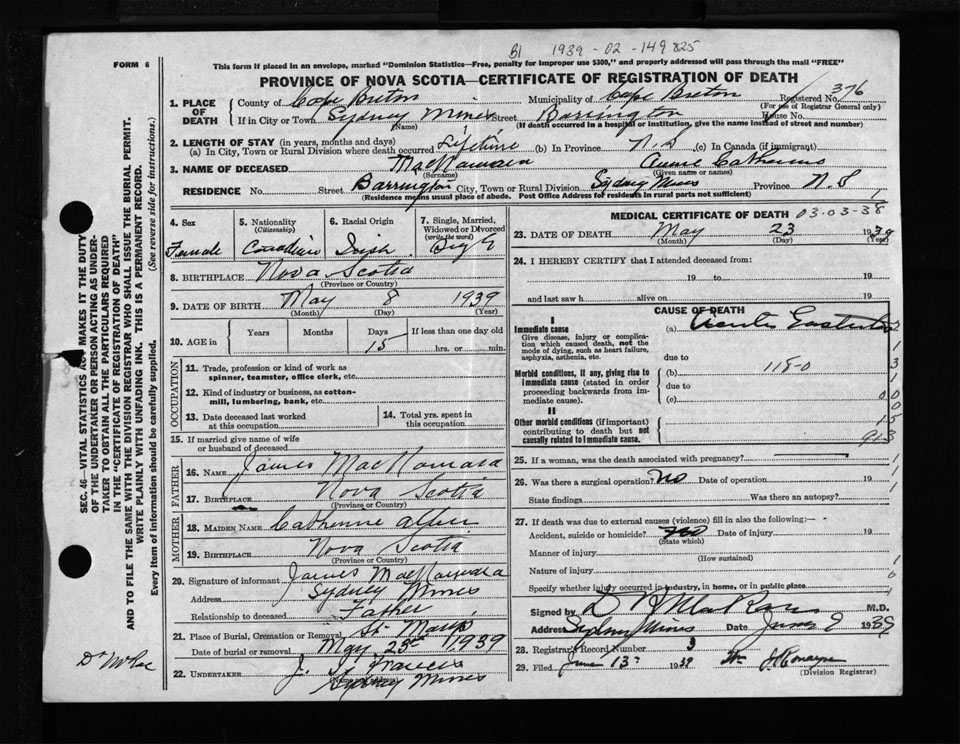 B1 1939 - 02 - 149825
FORM 6
This form if placed in an envelope, marked "Dominion Statistics—Free, penalty for improper use $300," and properly addressed will pass through the mail "FREE"
PROVINCE OF NOVA SCOTIA—CERTIFICATE OF REGISTRATION OF DEATH
1. PLACE OF DEATH County of Cape Breton Municipality of Cape Breton Registered No. 376
(For use of Registrar General only)
If in City or Town Sydney Mines Street Barrington House No.
(Name) (If death occurred in a hospital or institution, give the name instead of street and number)
2. LENGTH OF STAY (in years, months and days)
(a) In City, Town or Rural Division where death occurred Lifetime (b) In Province N.S (c) In Canada (if immigrant)
3. NAME OF DECEASED MacNamara Annie Catherine
(Surname) (Given name or names)
RESIDENCE No. Street Barrington City, Town or Rural Division Sydney Mines Province N.S
(Residence means usual place of abode. Post Office Address for residents in rural parts not sufficient)
4. Sex Female
5. Nationality (Citizenship) Canadian
6. Racial Origin Irish
7. Single, Married, Widowed or Divorced (write the word)
8. BIRTHPLACE Nova Scotia
(Province or Country)
9. DATE OF BIRTH May 8 1939
(Month) (Day) (Year)
10. AGE in Years Months Days If less than one day old
15 hrs. or min.
OCCUPATION
11. Trade, profession or kind of work as spinner, teamster, office clerk, etc.
12. Kind of industry or business, as cotton-mill, lumbering, bank, etc.
13. Date deceased last worked at this occupation
14. Total yrs. spent in this occupation
15. If married give name of wife or husband of deceased
FATHER
16. NAME James MacNamara
17. BIRTHPLACE Nova Scotia
(Province or Country)
MOTHER
18. MAIDEN NAME Catherine
19. BIRTHPLACE Nova Scotia
(Province or Country)
20. Signature of informant James MacNamara
Address Sydney Mines
Relationship to deceased Father
21. Place of Burial, Cremation or Removal St. Marys
Date of burial or removal May 25th 1939
22. UNDERTAKER J. J. Francis
Sydney Mines
MEDICAL CERTIFICATE OF DEATH 03-03-38
23. DATE OF DEATH May 23 1939
(Month) (Day) (Year)
24. I HEREBY CERTIFY that I attended deceased from:
19 to 19
and last saw h alive on 19
CAUSE OF DEATH
I
Immediate cause
Give disease, injury or complication which caused death, not the mode of dying, such as heart failure, asphyxia, asthenia, etc.
(a) Acute
due to
Morbid conditions, if any, giving rise to immediate cause (stated in order proceeding backwards from immediate cause).
(b) 118-0
due to
(c)
II
Other morbid conditions (if important) contributing to death but not causally related to immediate cause.
25. If a woman, was the death associated with pregnancy?
26. Was there a surgical operation? No Date of operation 19
State findings Was there an autopsy?
27. If death was due to external causes (violence) fill in also the following:—
Accident, suicide or homicide? Date of injury 19
(State which)
Manner of injury
(How sustained)
Nature of injury
Specify whether injury occurred in industry, in home, or in public place
Signed by M.D.
Address Sydney Mines Date 1939
28. Registrar's Record Number 3
29. Filed June 13th 1939
(Division Registrar)
SEC. 46—VITAL STATISTICS ACT MAKES IT THE DUTY
OF THE UNDERTAKER OR PERSON ACTING AS UNDER-
TAKER TO OBTAIN ALL THE PARTICULARS REQUIRED
IN THE "CERTIFICATE OF REGISTRATION OF DEATH"
AND TO FILE THE SAME WITH THE DIVISION REGISTRAR WHO SHALL ISSUE THE BURIAL PERMIT.
WRITE PLAINLY WITH UNFADING INK. THIS IS A PERMANENT RECORD.
Every item of information should be carefully supplied. (See reverse side for instructions.)